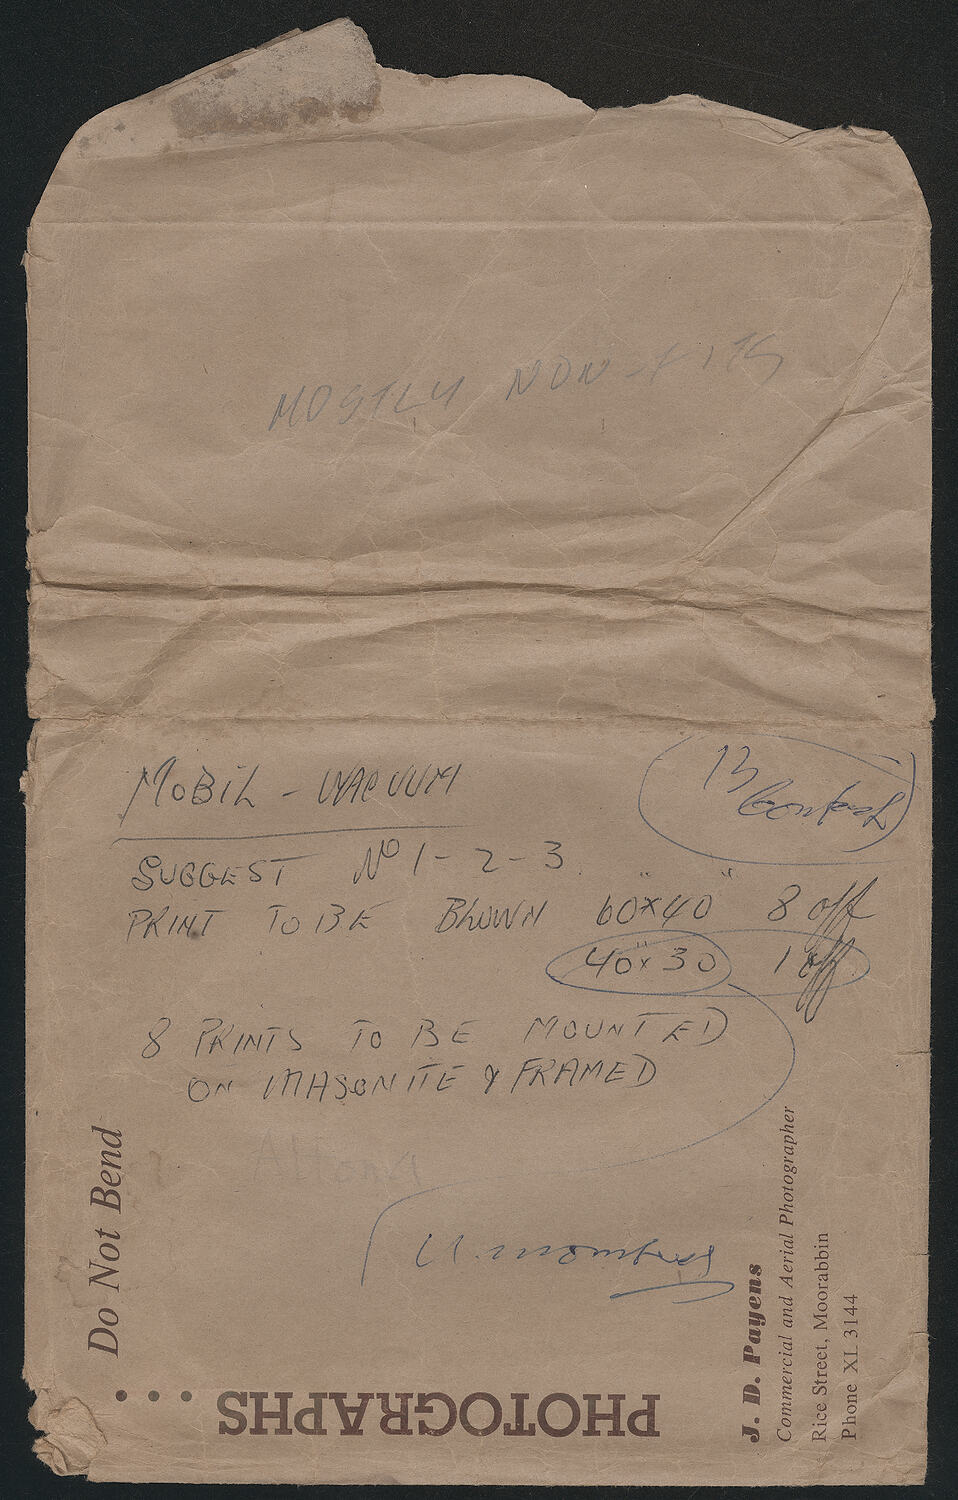 MOSTLY NON-FITS
MOBIL - VACUUM
13
SUGGEST Nº 1-2-3.
PRINT TO BE BLOWN 60"x40" 8 off
40"x30 1 off
8 PRINTS TO BE MOUNTED
ON MASONITE & FRAMED
Unmounted
Do Not Bend
PHOTOGRAPHS ...
J. D. Payens
Commercial and Aerial Photographer
Rice Street, Moorabbin
Phone XL 3144